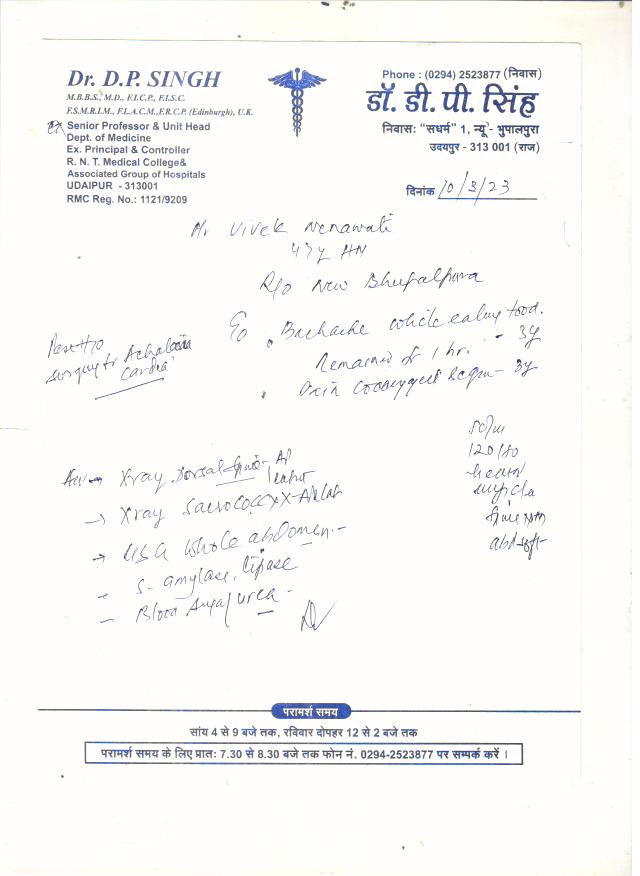 Dr. D.P. SINGH
M.B.B.S., M.D., F.I.C.P., F.I.S.C.
F.S.M.R.I.M., F.I.A.C.M., F.R.C.P. (Edinburgh), U.K.
Ex Senior Professor & Unit Head
Dept. of Medicine
Ex. Principal & Controller
R. N. T. Medical College&
Associated Group of Hospitals
UDAIPUR - 313001
RMC Reg. No.: 1121/9209
Phone : (0294) 2523877 (निवास)
डॉ. डी. पी. सिंह
निवास: "सधर्म" 1, न्यू - भुपालपुरा
उदयपुर - 313 001 (राज)
दिनांक 10/3/23
Mr Vivek Nenawati
47y
R/o New Bhupalpura
Backache while eating food. - 3y
Remained for 1 hr.
Pain coccygeal region - 3y
Past H/o
surgery for Achalasia
Cardia
80/m
120/80
heart
abd-soft
Adv → Xray Dorsal Spine - AP
→ Xray Sacrococcyx -
→ USG Whole abdomen. -
- S. amylase, lipase
- Blood Sugar/urea -
परामर्श समय
सांय 4 से 9 बजे तक, रविवार दोपहर 12 से 2 बजे तक
परामर्श समय के लिए प्रातः 7.30 से 8.30 बजे तक फोन नं. 0294-2523877 पर सम्पर्क करें ।